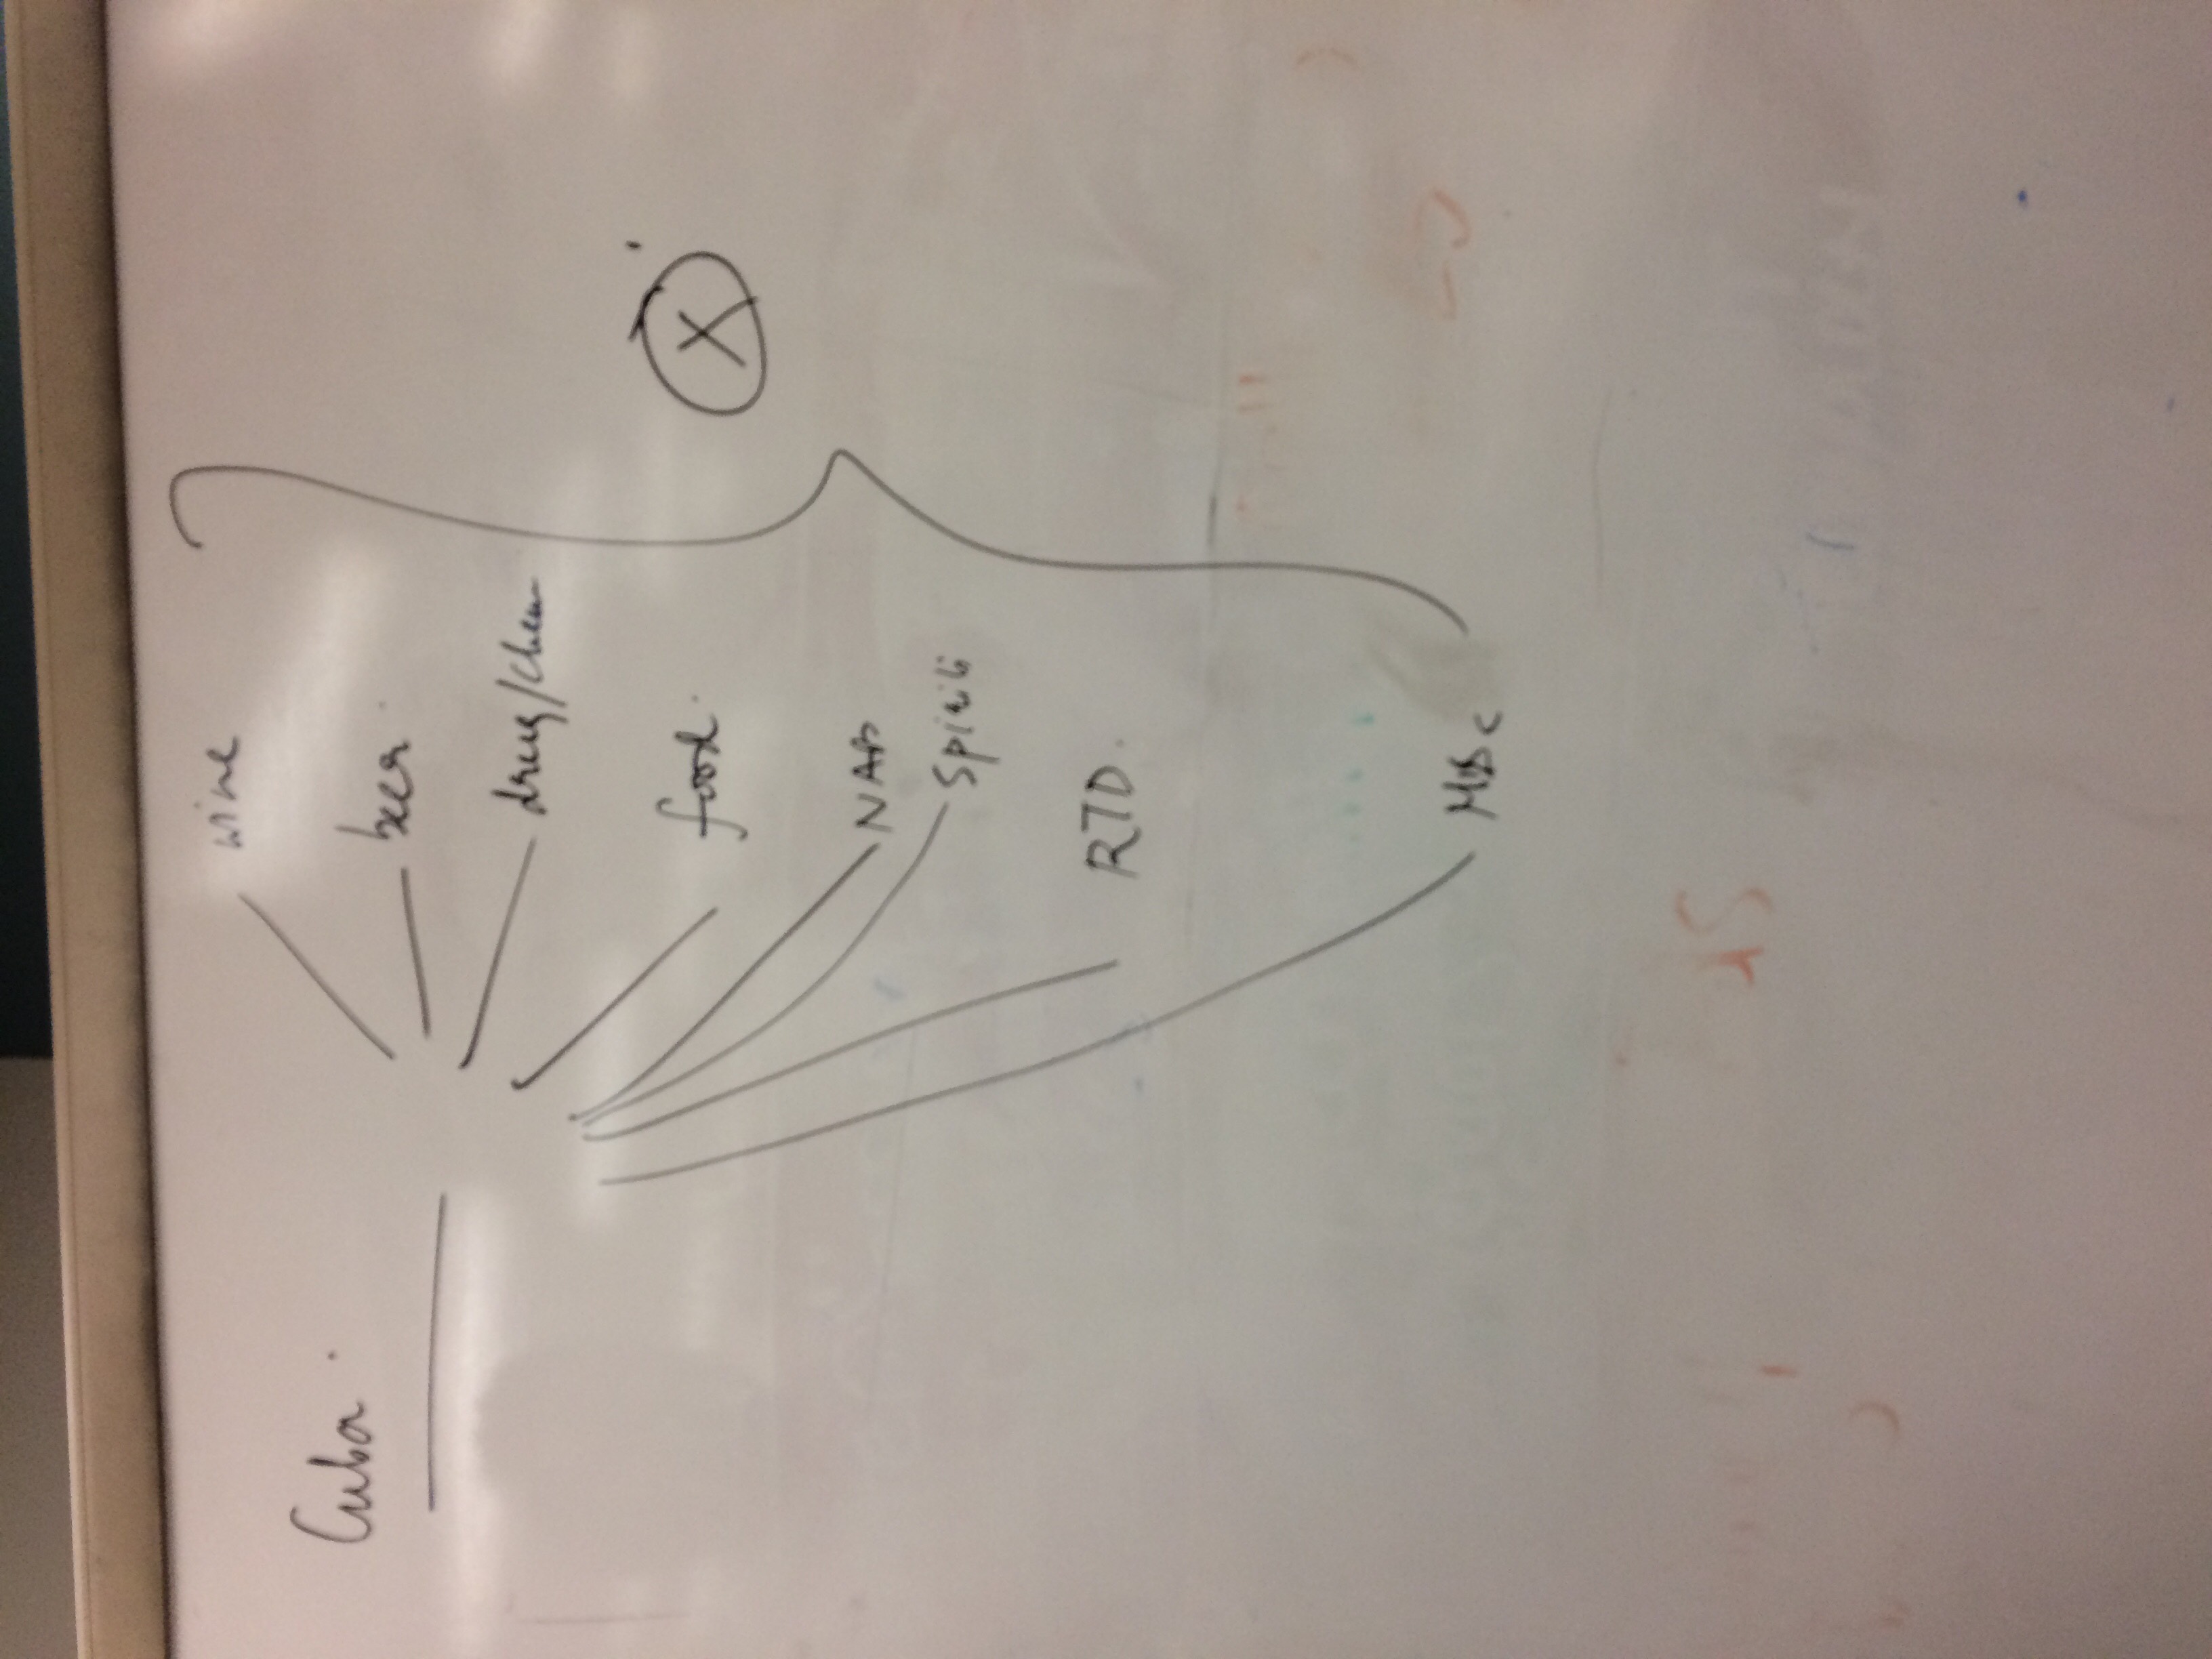 Cuba
wine
beer
drug/chem
food
NAB
Spirits
RTD
Misc
X